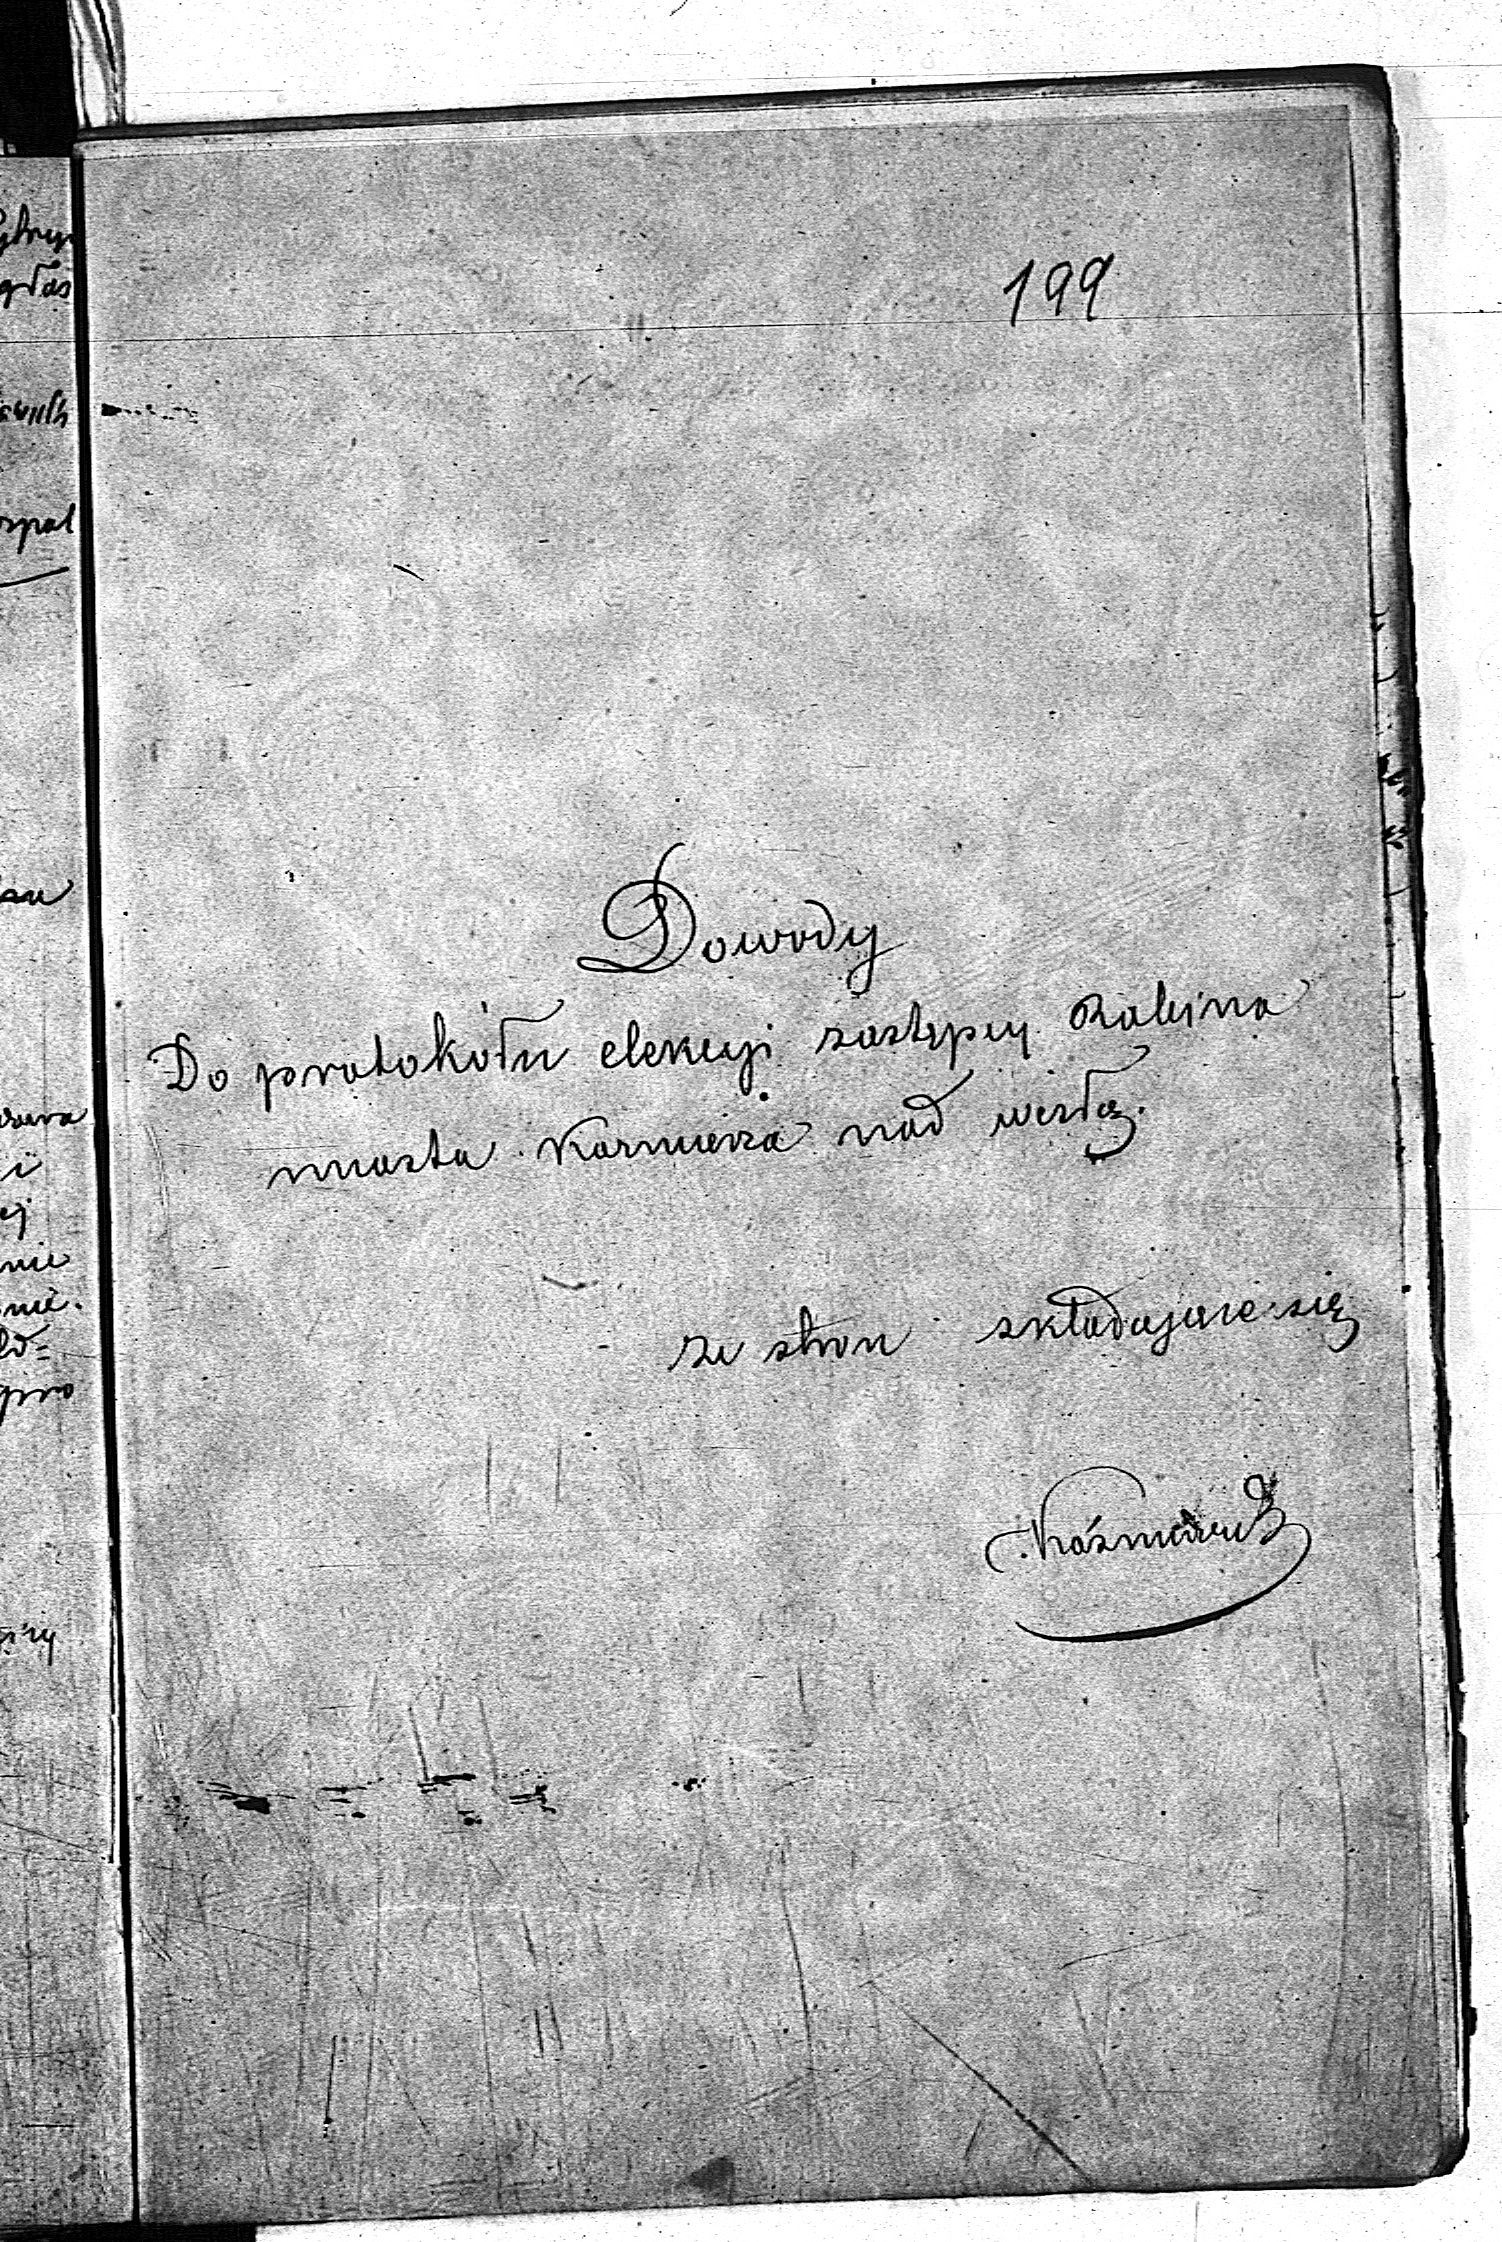 199
Dowody
Do protokółu elekcyi zastępcy Rabina
miasta Kazmierza nad wisłą.
ze stron składające się